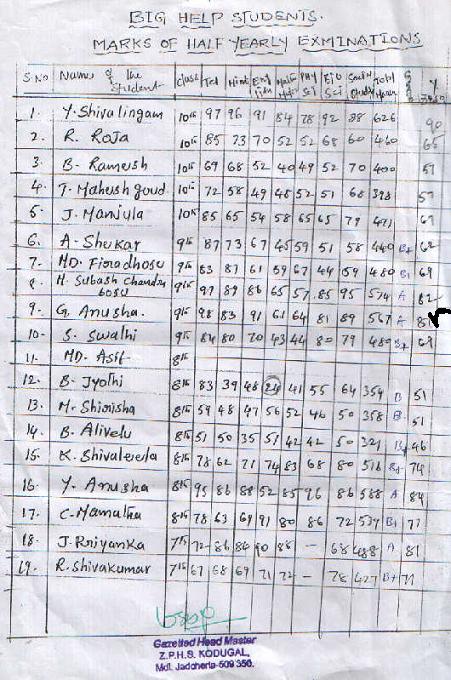 BIG HELP STUDENTS.
MARKS OF HALF YEARLY EXMINATIONS
S.No Name of the Student Class Tel Hindi English Maths Phy Sci Bio Sci Social Total
1. Y. Shivalingam 10th 97 96 91 84 78 92 88 626 90
2. R. Roja 10th 85 73 70 52 52 68 60 460 66
3. B. Ramesh 10th 69 68 52 40 49 52 70 400 57
4. T. Mahesh goud 10th 72 58 49 48 52 51 68 398 57
5. J. Manjula 10th 85 65 54 58 65 65 79 471 67
6. A. Shekar 9th 87 73 67 45 59 51 58 440 B+ 62
7. MD. 9th 83 87 61 59 67 44 59 480 B+ 69
8. H. Subash Chandra bosu 9th 97 89 86 65 57 85 95 574 A 82
9. G. Anusha. 9th 98 83 91 61 64 81 89 567 A 81
10. S. Swathi 9th 84 80 70 43 44 80 79 480 B+ 69
11. MD. Asif 8th
12. B. Jyothi 8th 83 39 48 24 41 55 64 354 B 51
13. M. Shirisha 8th 59 48 47 56 52 46 50 358 B 51
14. B. Alivelu 8th 51 50 35 51 42 42 50 321 46
15. K. Shivaleela 8th 78 62 71 74 83 68 80 516 B+ 74
16. Y. Anusha 8th 95 86 88 52 85 96 86 588 A 84
17. C. Mamatha 8th 78 63 69 91 80 86 72 539 B+ 77
18. J. Priyanka 7th 72 86 84 90 88 - 68 488 A 81
19. R. Shivakumar 7th 67 68 69 71 72 - 78 427 B+ 71
Gazetted Head Master
Z.P.H.S. KODUGAL,
Mdl. Jadcherla-509 350.